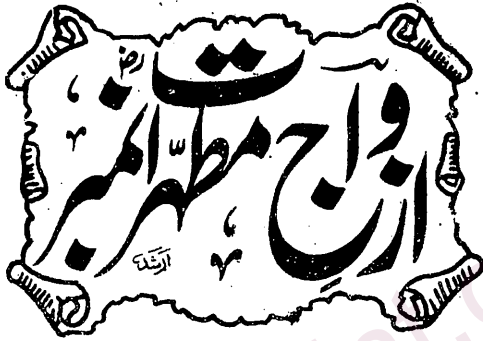 ازواجِ مطہّرات نمبر
ارشد